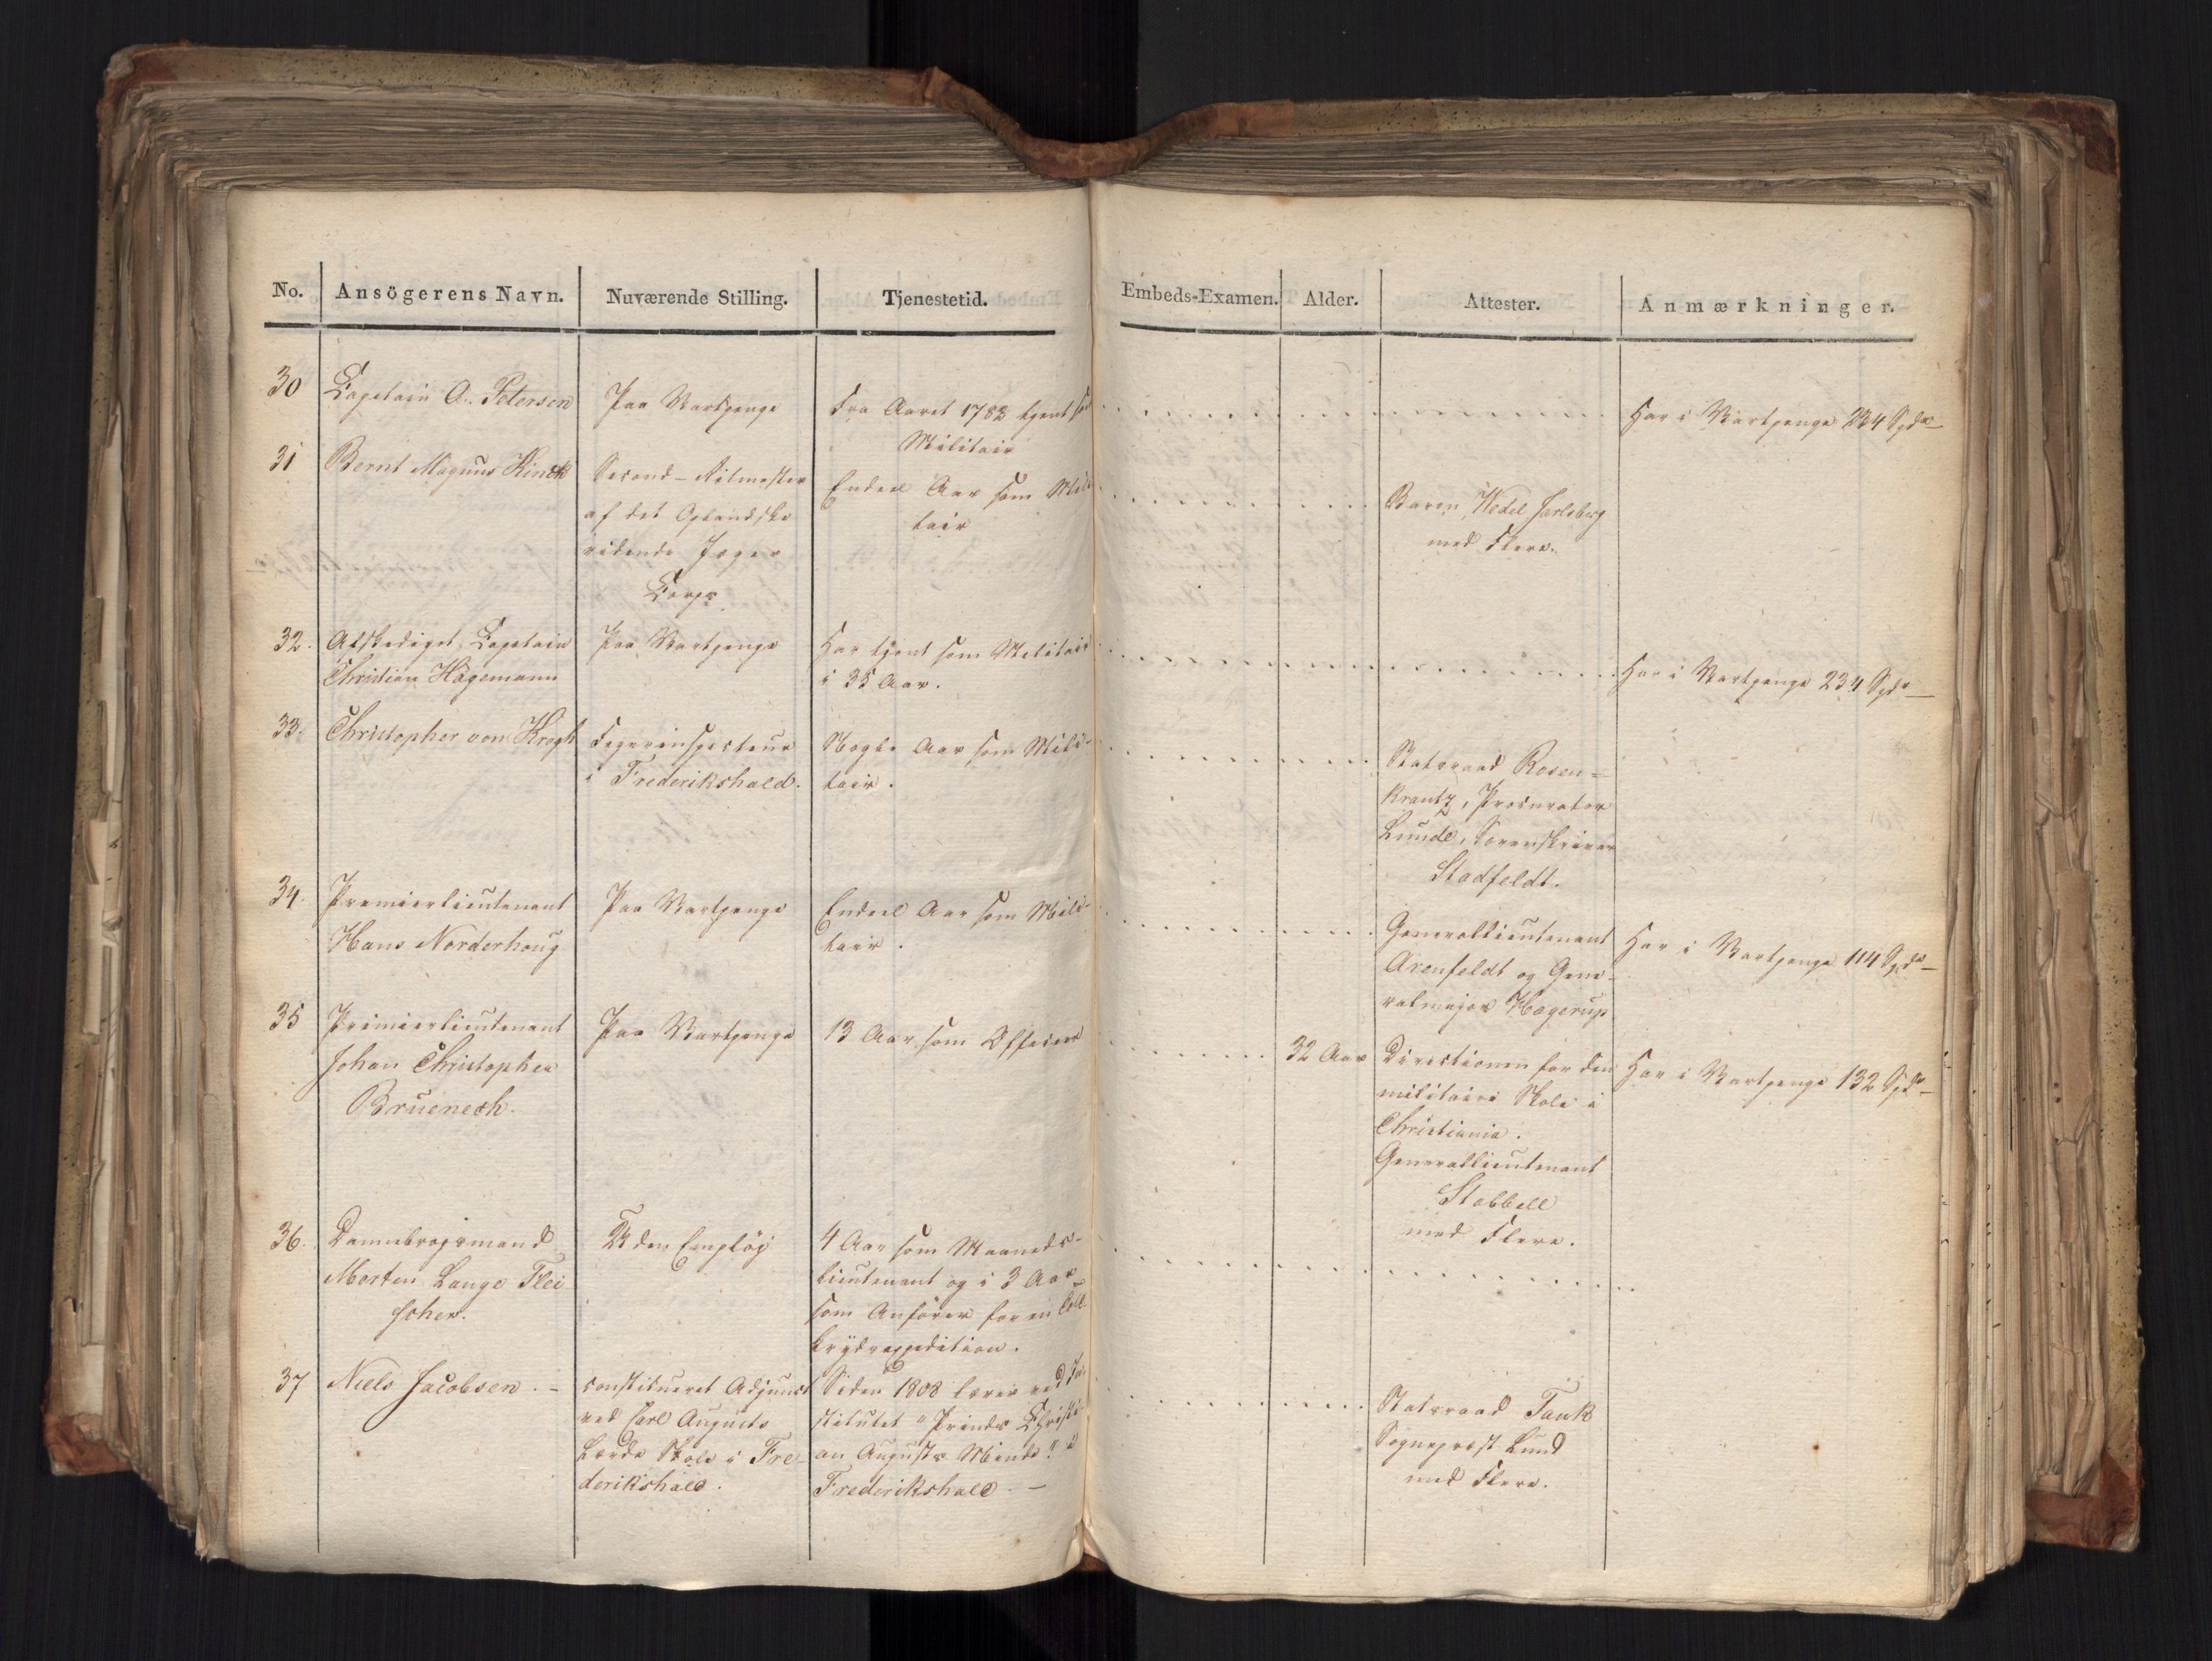 No. Ansögerens Navn. Nuværende Stilling. Tjenestetid. Embeds-Examen. Alder. Attester. Anmærkninger.
30 Capitain A. Petersen
Paa Vartpenge
Fra Aaret 1782 tjent som
Militair
Har i Vartpenge 234 Spdr
31 Bernt Magnus Kinck
Second-Ritmester
af det Oplandske
ridende Jæger
Corps
Endeel Aar som Mili
tair
Baron Wedel Jarlsberg
med Flere.
32. Afskediget Capitain
Christian Hagemann
Paa Vartpenge
Har tjent som Militair
i 35 Aar.
Har i Vartpenge 234 Spdr
33. Christopher von Krogh
Fyrinspecteur
i Frederikshald.
Nogle Aar som Mili-
tair.
Statsraad Rosen=
krantz, Procurator
Lunde, Sorenskriver
Stadfeldt.
34. Premierlieutenant
Hans Norderhoug
Paa Vartpenge
Endeel Aar som Mili-
tair.
Generallieutenant
Arenfeldt og Gene-
ralmajor Hagerup
Har i Vartpenge 114 Spdr
35 Primierlieutenant
Johan Christopher
Bruenech.
Paa Vartpenge
13 Aar som Officeer
32 Aar
Directionen for den
militaire Skole i
Christiania.
Generallieutenant
Stabbell
med Flere.
Har i Vartpenge 132 Spdr
36. Dannebrogsmand
Morten Lange Flei
scher.
Uden Emploÿ
4 Aar som Maaneds-
lieutenant og i 3 Aar
som Anförer for en
krydsexpedition.
37 Niels Jacobsen. -
constitueret Adjunct
ved Carl Augusts
Lærde Skole i Fre-
derikshald.
Siden 1808 lærer ved In-
stitutet "Prinds Christi
an Augusts Minde" i
Frederikshald. -
Statsraad Tank
Sognepræst Lund
med Flere.